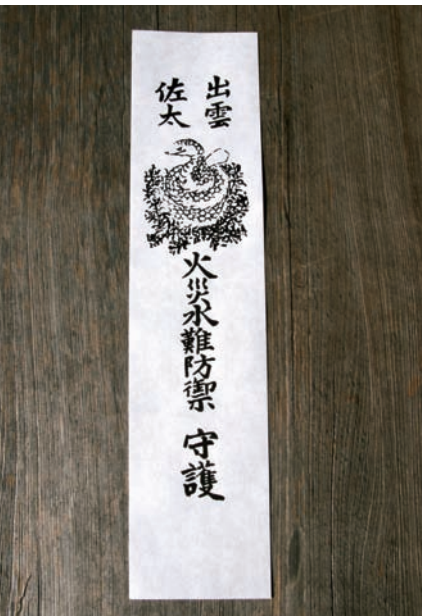 出雲
佐太
火災水難防禦 守護